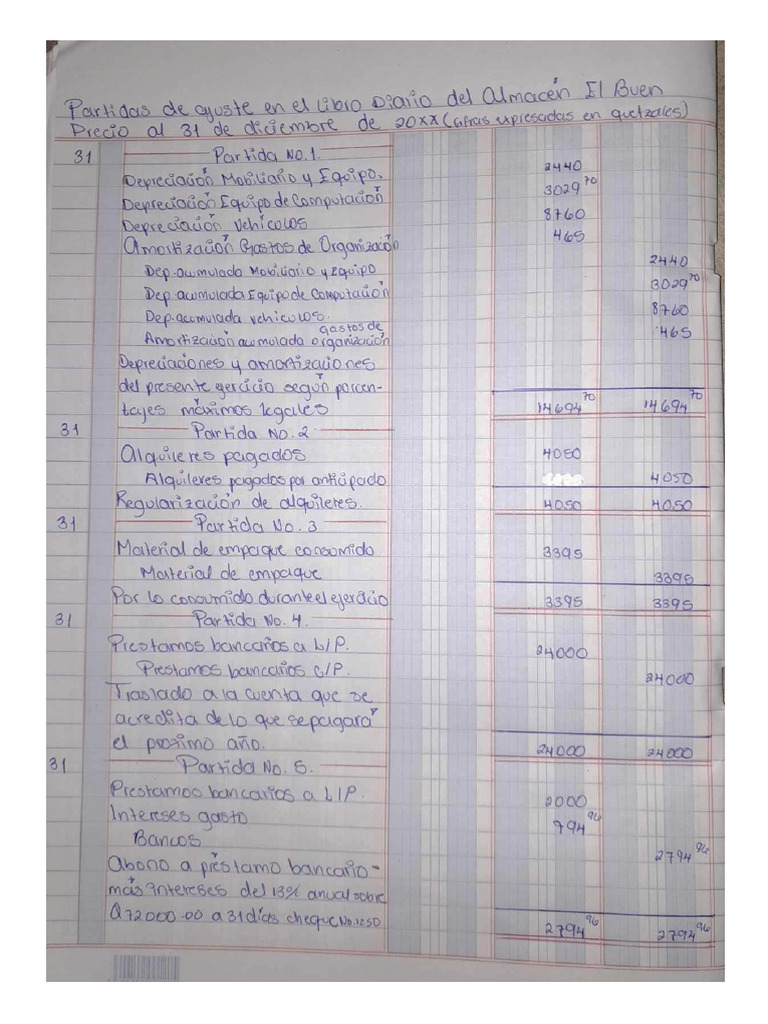 Partidas de ajuste en el Libro Diario del Almacén El Buen
Precio al 31 de diciembre de 20XX (cifras expresadas en quetzales)
31 Partida No. 1.
Depreciación Mobiliario y Equipo. 2440
Depreciación Equipo de Computación 3029 70
Depreciación Vehículos 8760
Amortización Gastos de Organización 465
Dep. acumulada Mobiliario y Equipo 2440
Dep. acumulada Equipo de Computación 3029 70
Dep. acumulada vehículos. 8760
Amortización acumulada gastos de organización 465
Depreciaciones y amortizaciones
del presente ejercicio según porcen-
tajes máximos legales 14694 70 14694 70
31 Partida No. 2
Alquileres pagados 4050
Alquileres pagados por anticipado 4050
Regularización de alquileres. 4050 4050
31 Partida No. 3
Material de empaque consumido 3395
Material de empaque 3395
Por lo consumido durante el ejercicio 3395 3395
31 Partida No. 4.
Prestamos bancarios a L/P. 24000
Prestamos bancarios C/P. 24000
Traslado a la cuenta que se
acredita de lo que se pagará
el proximo año. 24000 24000
31 Partida No. 5.
Prestamos bancarios a L/P. 2000
Intereses gasto 794 96
Bancos 2794 96
Abono a préstamo bancario-
más intereses del 13% anual sobre
Q72000.00 a 31 días cheque No. 1250 2794 96 2794 96